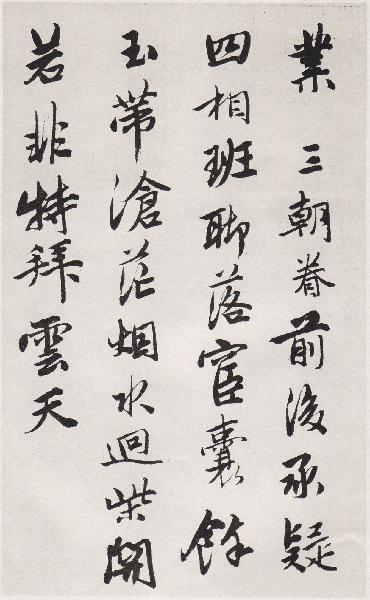 業 三朝眷前後承疑
四相班聊落宦囊餘
玉帶滄茫烟水迥柴關
若非特拜雲天